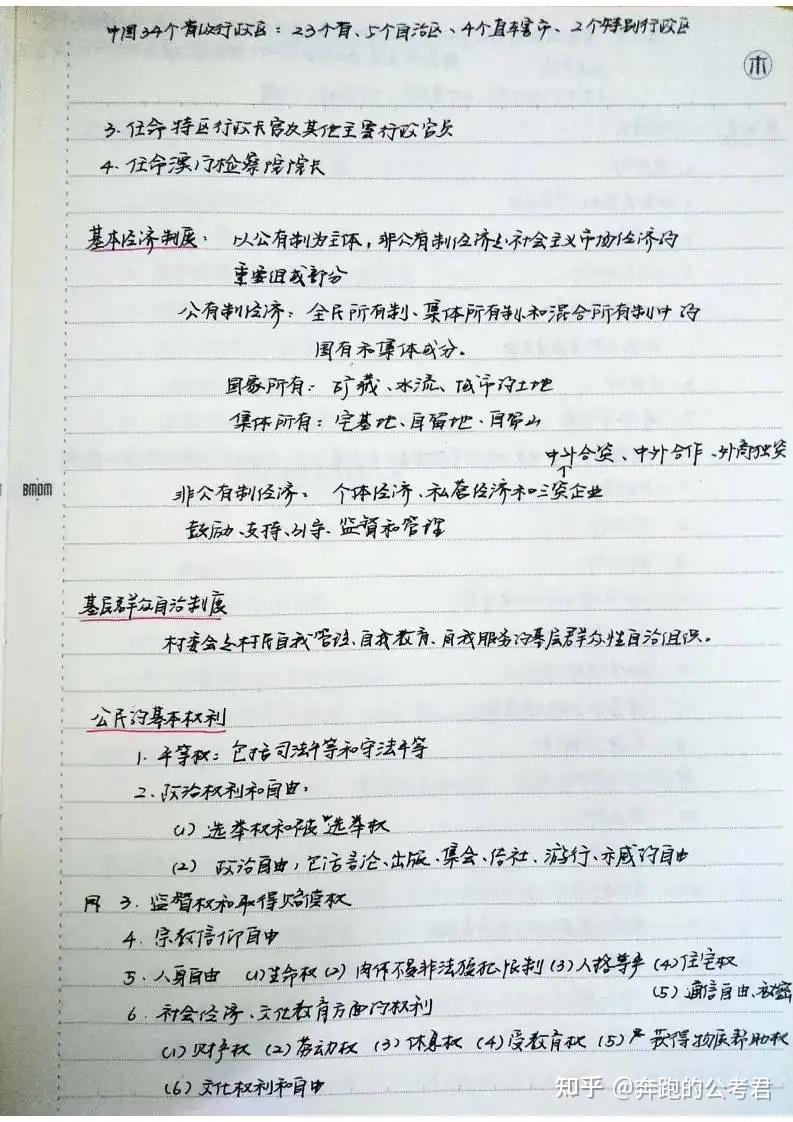 中国34个省级行政区：23个省、5个自治区、4个直辖市、2个特别行政区
木
3. 任命特区行政长官及其他主要行政官员
4. 任命澳门检察院院长
基本经济制度： 以公有制为主体，非公有制经济是社会主义市场经济的
重要组成部分
公有制经济：全民所有制、集体所有制和混合所有制中的
国有和集体成分。
国家所有：矿藏、水流、城市的土地
集体所有：宅基地、自留地、自留山
中外合资、中外合作、外商独资
BMDM
非公有制经济： 个体经济、私营经济和三资企业
鼓励、支持、引导、监督和管理
基层群众自治制度
村委会是村民自我管理、自我教育、自我服务的基层群众性自治组织。
公民的基本权利
1. 平等权：包括司法平等和守法平等
2. 政治权利和自由：
(1) 选举权和被选举权
(2) 政治自由，包括言论、出版、集会、结社、游行、示威的自由
3. 监督权和取得赔偿权
4. 宗教信仰自由
5. 人身自由 (1)生命权 (2) 肉体不受非法强犯限制 (3)人格尊严 (4)住宅权
(5) 通信自由、秘密
6. 社会经济、文化教育方面的权利
(1) 财产权 (2) 劳动权 (3) 休息权 (4)受教育权 (5) 获得物质帮助权
(6) 文化权利和自由
知乎 @奔跑的公考君